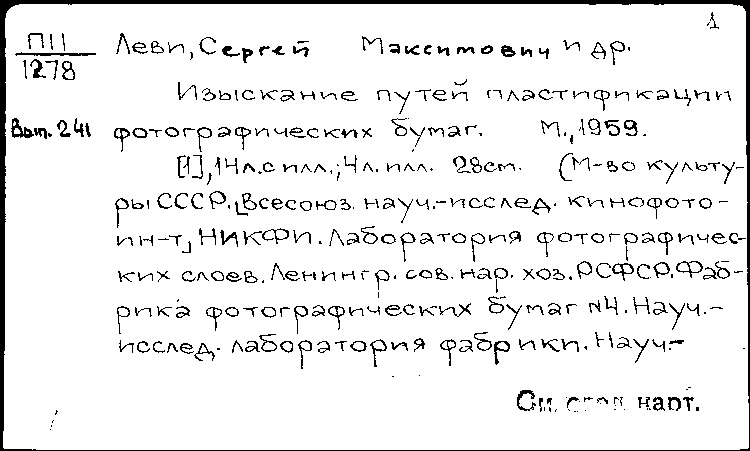 1
П11 Леви, Сергей Максимович и др.
1278
Изыскание путей пластификации
Вып. 241 фотографических бумаг. М., 1959.
[1], 14 л. с илл.; 4 л. илл. 28 см. (М-во культу-
ры СССР. [Всесоюз. науч.-исслед. кинофото-
ин-т] НИКФИ. Лаборатория фотографичес-
ких слоев. Ленингр. сов. нар. хоз. РСФСР. Фаб-
рика фотографических бумаг N4. Науч.-
исслед. лаборатория фабрики. Науч.-
См. след. карт.